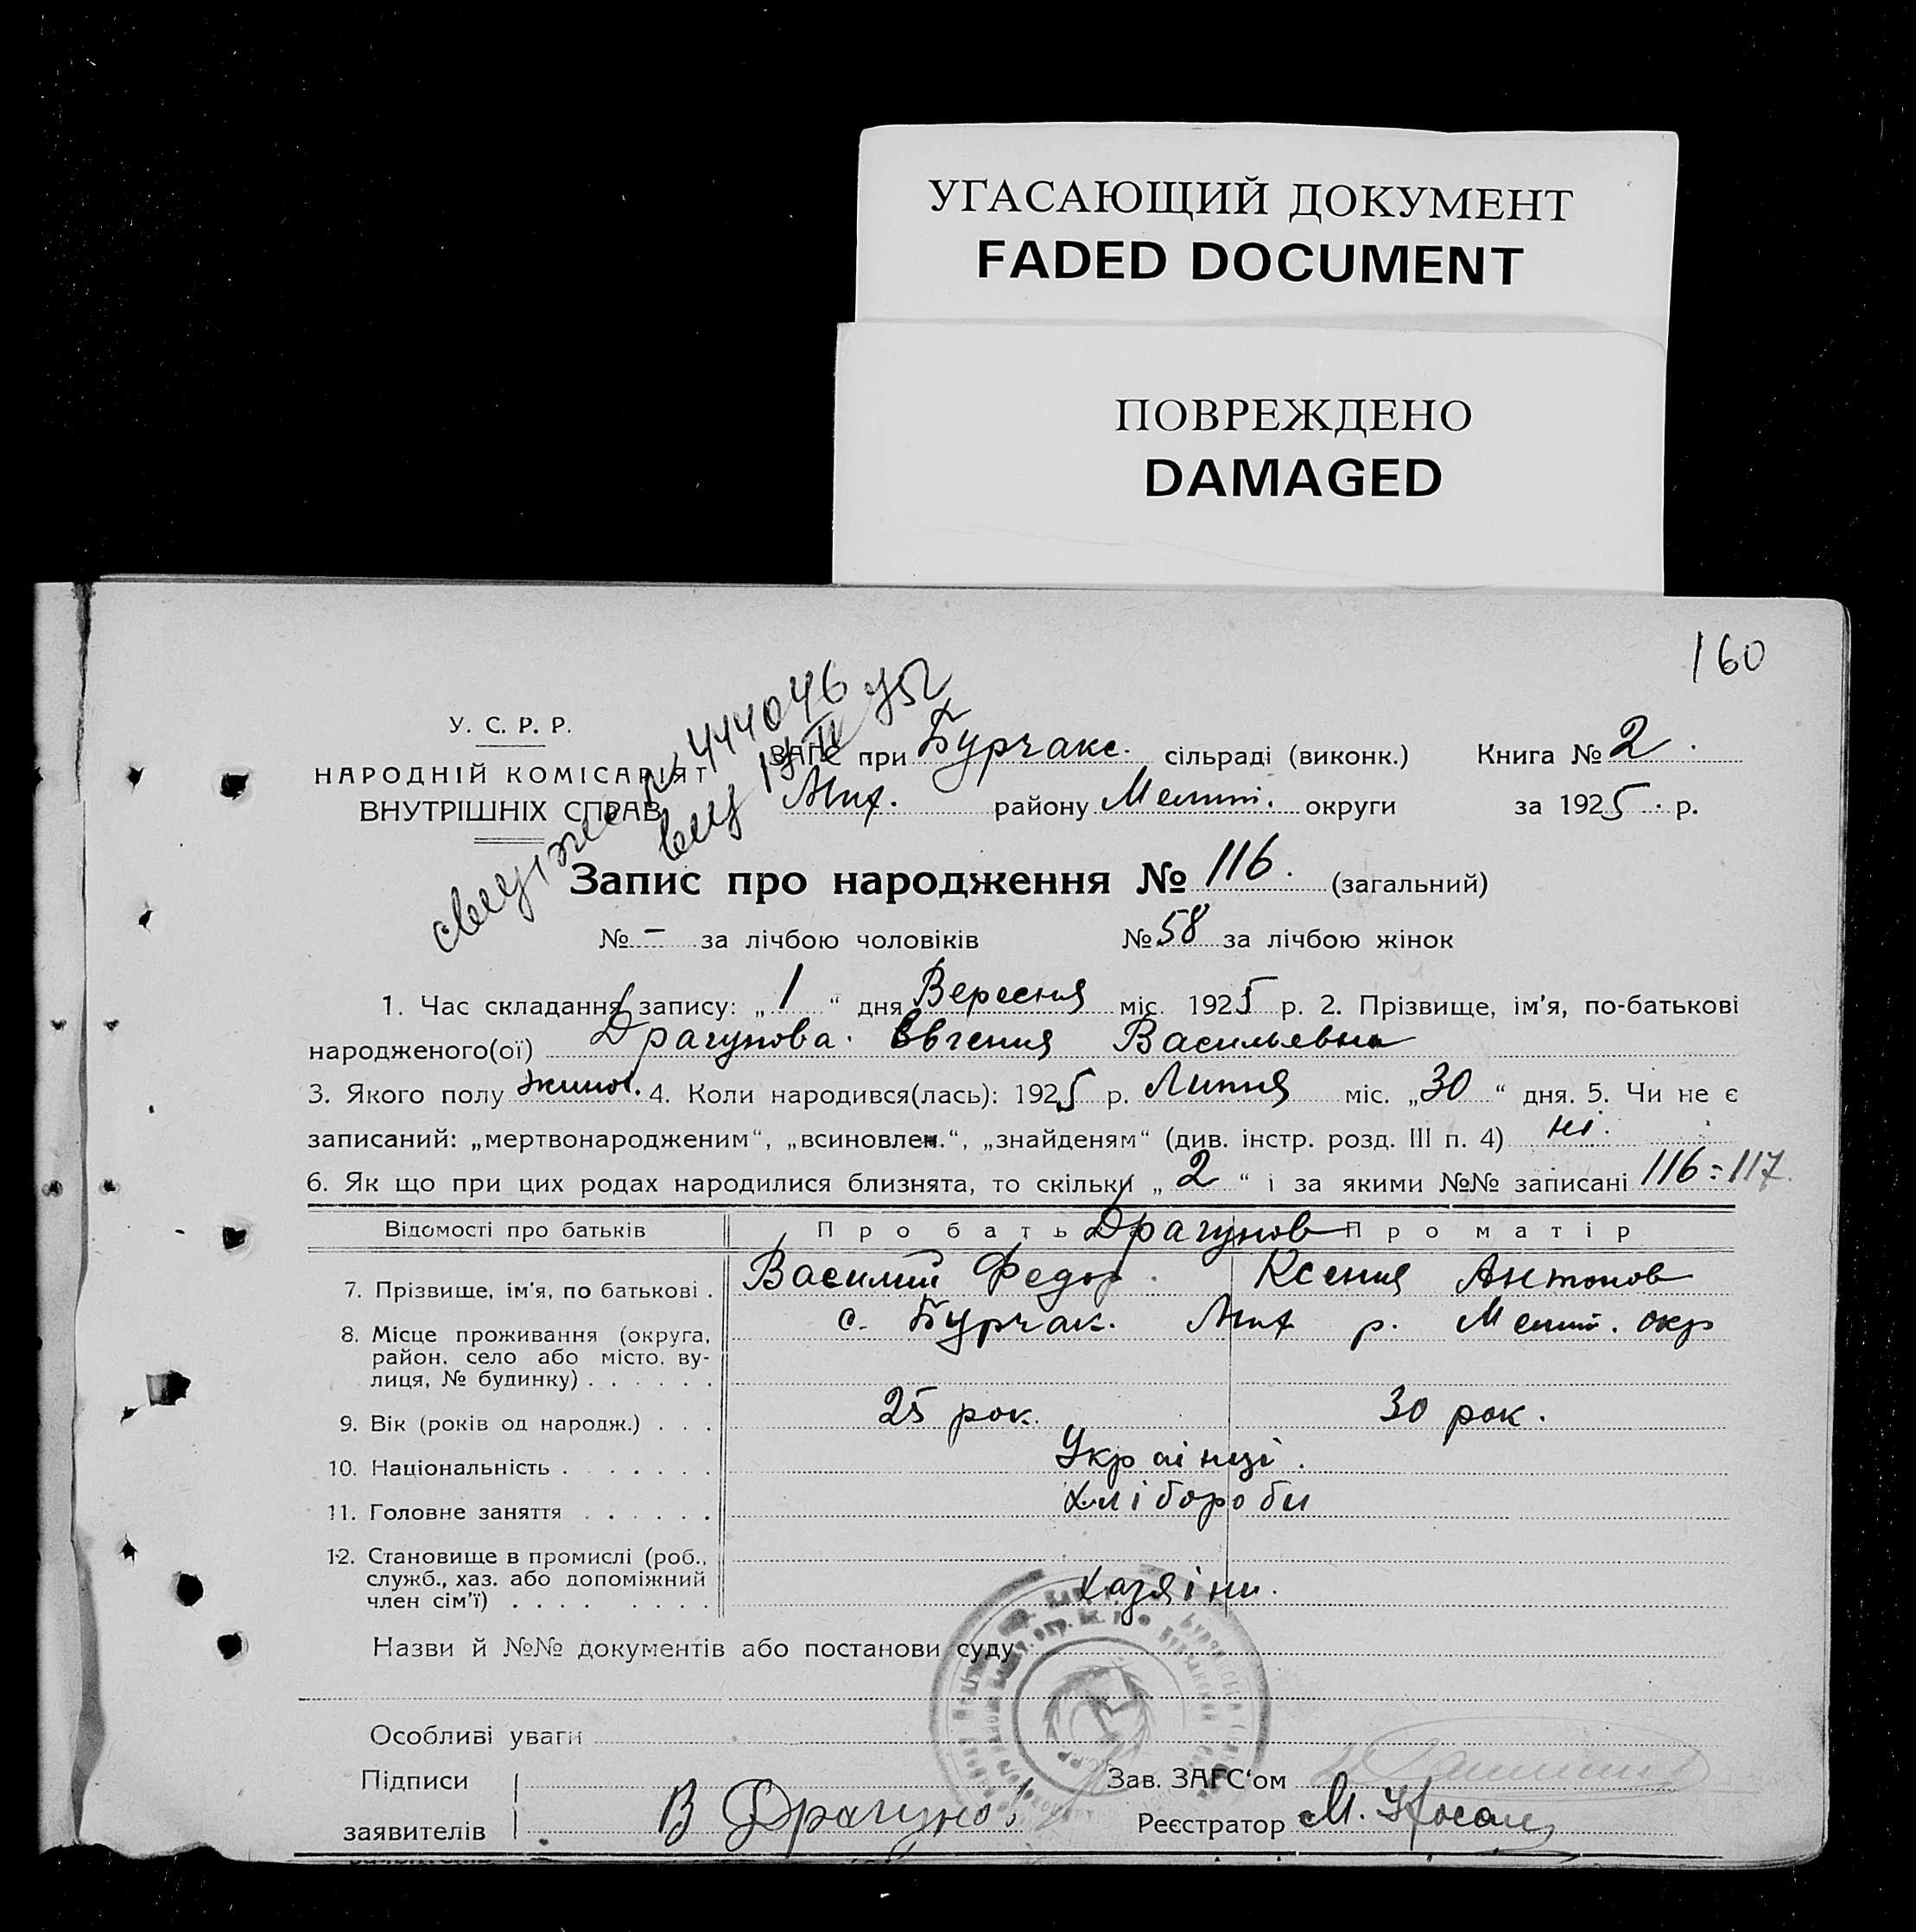 УГАСАЮЩИЙ ДОКУМЕНТ
FADED DOCUMENT
ПОВРЕЖДЕНО
DAMAGED
160
У. С. Р. Р.
НАРОДНІЙ КОМІСАРІЯТ
ВНУТРІШНІХ СПРАВ
444046
ЗАГС при Бурчакс. сільраді (виконк.)
Книга № 2.
Мих. району Мелит. округи
за 1925 р.
Запис про народження № 116. (загальний)
№ – за лічбою чоловіків
№ 58 за лічбою жінок
1. Час складання запису: „1“ дня Вересня міс. 1925 р. 2. Прізвище, ім’я, по-батькові
народженого(ої) Драгунова. Евгения Васильевна
3. Якого полу жиноч. 4. Коли народився(лась): 1925 р. Липня міс. „30“ дня. 5. Чи не є
записаний: „мертвонародженим“, „всиновлен.“, „знайденям“ (див. інстр. розд. III п. 4) ні.
6. Як що при цих родах народилися близнята, то скільки „2“ і за якими №№ записані 116-117.
Відомості про батьків
Про бать Драгунов Про матір
7. Прізвище, ім’я, по батькові . Василий Федор. Ксения Антонов
8. Місце проживання (округа, с. Бурчак. Мих р. Мелит. окр
район, село або місто, ву-
лиця, № будинку) . . . . . .
9. Вік (років од народж.) . . . 25 рок. 30 рок.
10. Національність . . . . . . . Українці.
11. Головне заняття . . . . . . хлібороби
12. Становище в промислі (роб.,
служб., хаз. або допоміжний
член сім’ї) . . . . . . . . . хазяіни.
Назви й №№ документів або постанови суду
Особливі уваги
Підписи
заявителів
В Драгунов
Зав. ЗАГС‘ом
Реєстратор М. Носач